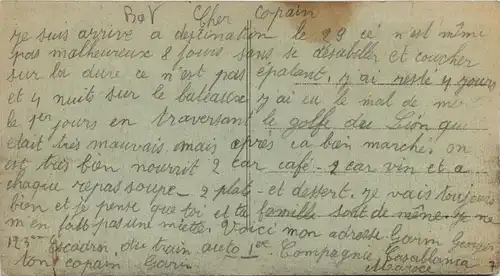 BoV Cher Copain
je suis arrivé a destination le 29 cé n'est même
pas malheureux 8 jours sans se désabiller et coucher
sur la dure ce n'est pas épatant, j'ai resté 4 jours
et 4 nuits sur le bateaux j'ai eu le mal de mer
le 1er jours en traversant le golfe du Lion qui
était très mauvais mais après ca bien marché, on
est très bien nourrit 2 car café - 2 car vin et a
chaque repas soupe - 2 plats - et dessert. je vais toujours
bien et je pense que toi et ta famille sont de même. je ne
m'en fait pas une miette. Voici mon adresse Garin Georges
123em Escadron du train auto 1ere Compagnie Casablanca
ton copain Garin Maroc
7